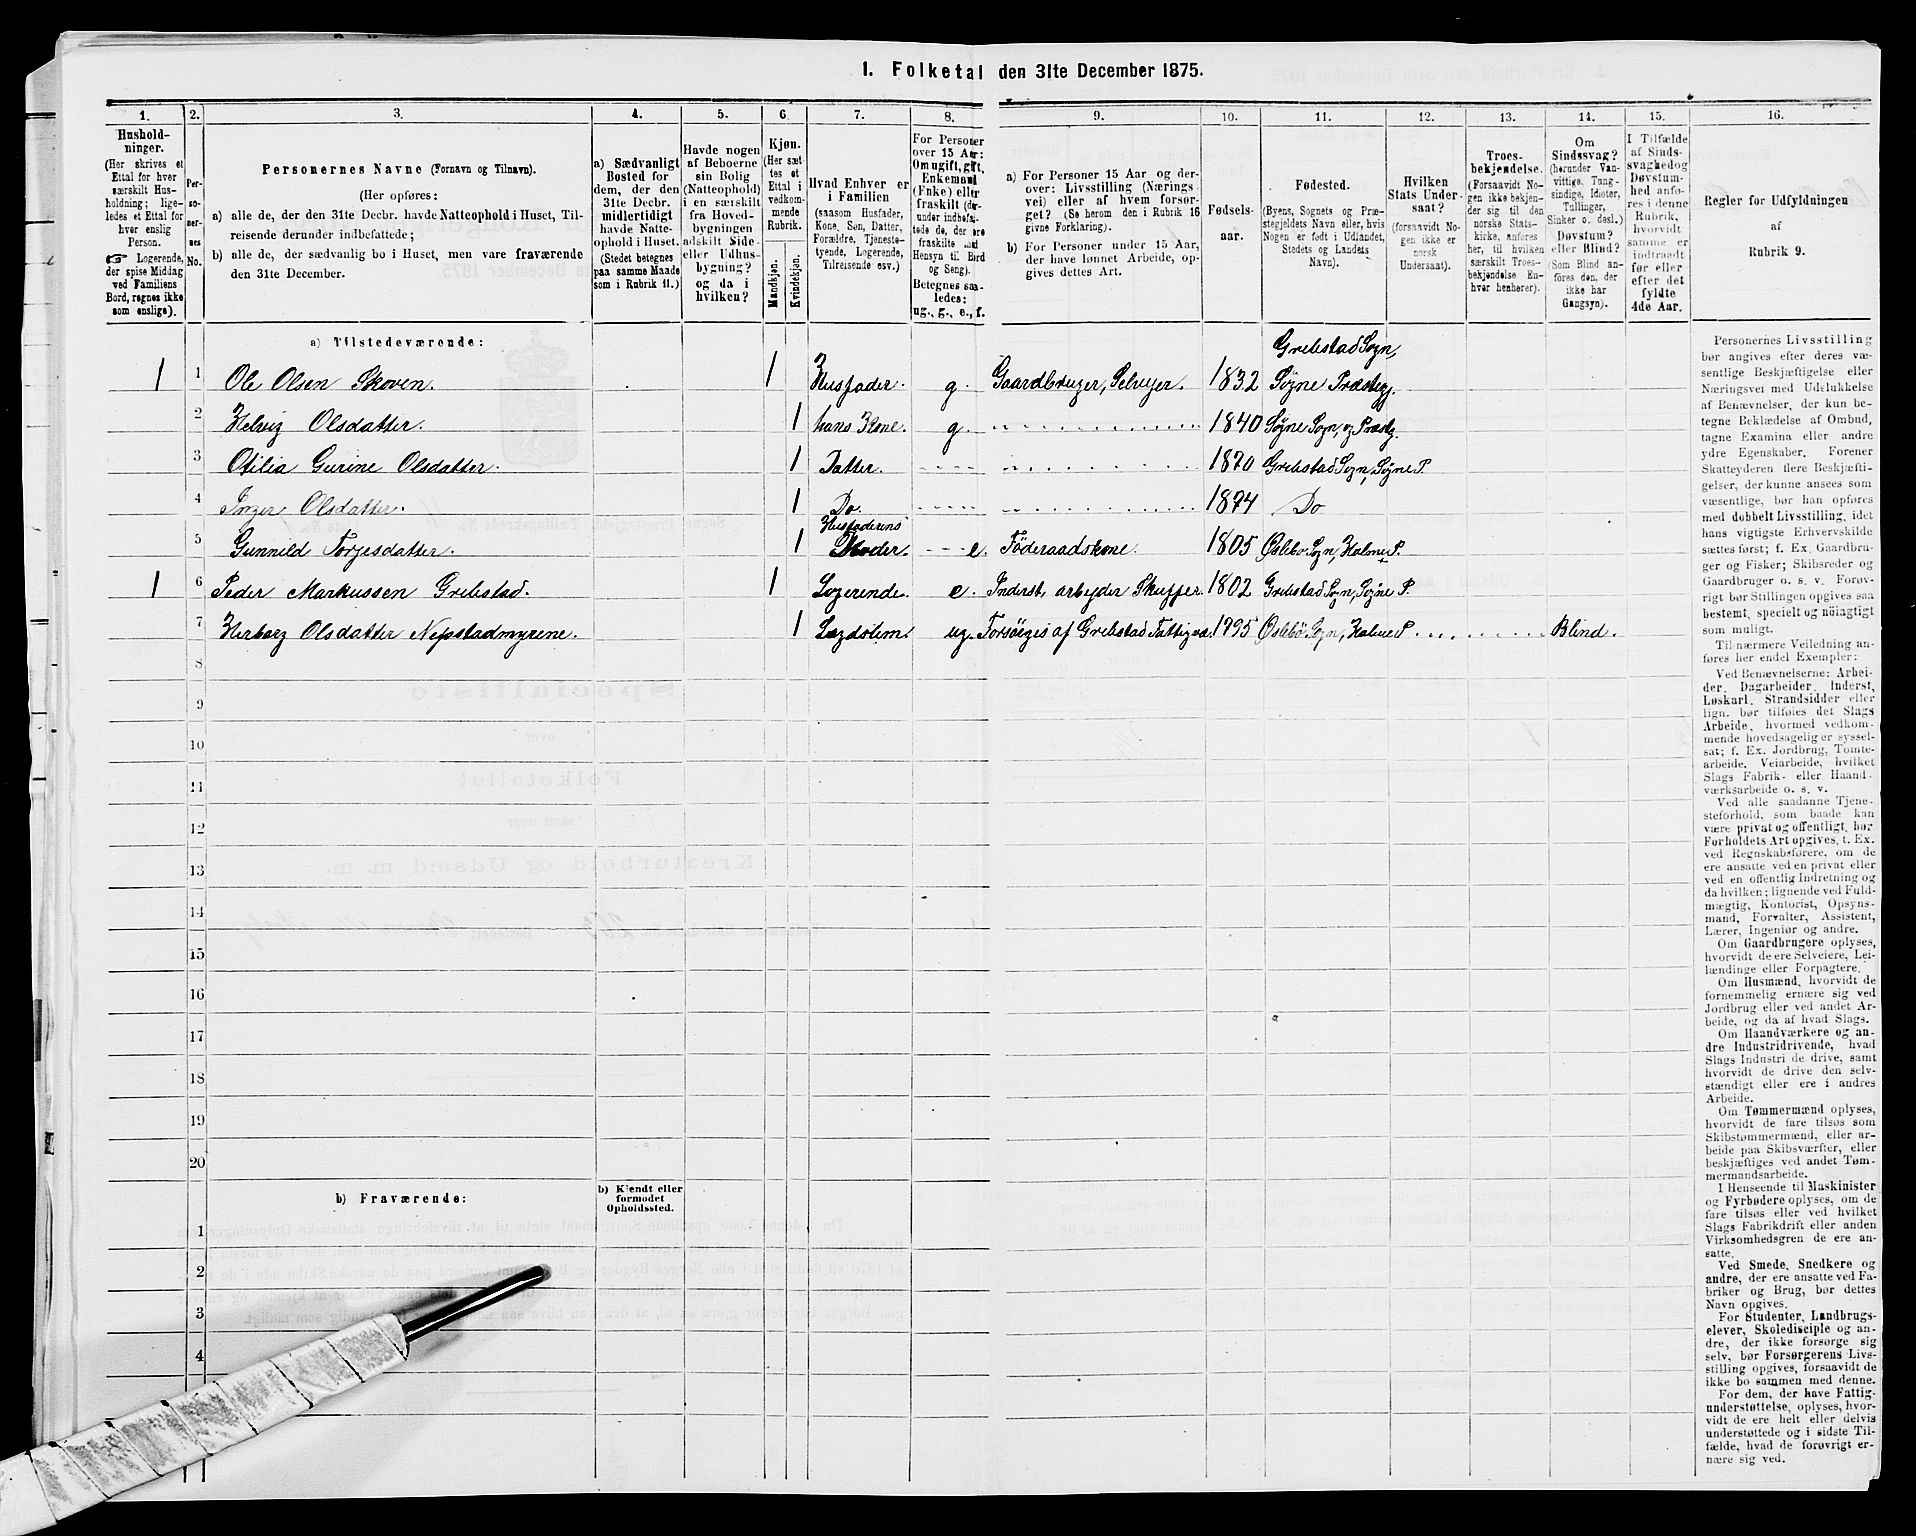 1. Folketal den 31te December 1875.
1. 2. 3. 4. 5. 6. 7. 8. 9. 10. 11. 12. 13. 14. 15. 16.
Hushold-
ninger.
(Her skrives et
Ettal for hver
særskilt Hus-
holdning; lige-
ledes et Ettal for
hver enslig
Person.
☞ Logerende,
der spise Middag
ved Familiens
Bord, regnes ikke
som enslige).
Per-
so-
ner-
nes
No.
Personernes Navne (Fornavn og Tilnavn).
(Her opføres:
a) alle de, der den 31te Decbr. havde Natteophold i Huset, Til-
reisende derunder indbefattede;
b) alle de, der sædvanlig bo i Huset, men vare fraværende
den 31te December.
a) Sædvanligt
Bosted for
dem, der den
31te Decbr.
midlertidigt
havde Natte-
ophold i Huset.
(Stedet betegnes
paa samme Maade
som i Rubrik 11.)
Havde nogen
af Beboerne
sin Bolig
(Natteophold)
i en særskilt
fra Hoved-
bygningen
adskilt Side-
eller Udhus-
bygning?
og da i
hvilken?
Kjøn.
(Her sæt-
tes et
Ettal i
vedkom-
mende
Rubrik.
Mandkjøn.
Kvindekjøn.
Hvad Enhver er
i Familien
(saasom Husfader,
Kone, Søn, Datter,
Forældre, Tjeneste-
tyende, Logerende,
Tilreisende osv.)
For Personer
over 15 Aar:
Om ugift, gift,
Enkemand
(Enke) eller
fraskilt (der-
under indbefat-
tede de, der ere
fraskilte med
Hensyn til Bord
og Seng).
Betegnes saa-
ledes:
ug., g., e., f.
a) For Personer 15 Aar og der-
over: Livsstilling (Nærings-
vei) eller af hvem forsør-
get? (Se herom den i Rubrik 16
givne Forklaring).
b) For Personer under 15 Aar,
der have lønnet Arbeide, op-
gives dettes Art.
Fødsels-
aar.
Fødested.
(Byens, Sognets og Præ-
stegjeldets Navn eller, hvis
Nogen er født i Udlandet,
Stedets og Landets
Navn).
Hvilken
Stats Under-
saat?
(forsaavidt No-
gen ikke er
norsk
Undersaat).
Troes-
bekjendelse.
(Forsaavidt No-
gen ikke bekjen-
der sig til den
norske Stats-
kirke, anføres
her, til hvilken
særskilt Troes-
bekjendelse En-
hver henhører).
Om
Sindssvag?
(herunder Van-
vittige, Tung-
sindige, Idioter,
Tullinger,
Sinker o. desl.)
Døvstum?
eller Blind?
(Som Blind an-
føres den, der
ikke har
Gangsyn).
I Tilfælde
af Sinds-
svaghed og
Døvstum-
hed anfø-
res i denne
Rubrik,
hvorvidt
samme er
indtraadt
før eller
efter det
fyldte
4de Aar.
Regler for Udfyldningen
af
Rubrik 9.
a) Tilstedeværende:
1 1 Ole Olsen Skoven. 1 Husfader. g. Gaardbruger, Selvejer. 1832 Grebstad Sogn, Søgne Præstegj.
2 Helvig Olsdatter. 1 hans Kone. g. 1840 Søgne Sogn, og Præstg.
3 Otilia Gurine Olsdatter. 1 Datter. 1870 Grebstad Sogn, Søgne P.
4 Inger Olsdatter. 1 Do. 1874 Do
5 Gunnild Torjesdatter. 1 Husfaderens Moder. e. Föderaadskone. 1805 Øslebo Sogn, Holme P.
1 6 Peder Markussen Grebstad. 1 Logerende. e. Inderst, arbeyder Skupper. 1802 Grebstad Sogn, Søgne P.
7 Herborg Olsdatter Nepstadmyrene. 1 Lægdslem. ug. Forsörges af Grebstad Fattigvæ. 1795 Øslebö Sogn, Holme P. Blind.
8
9
10
11
12
13
14
15
16
17
18
19
20
b) Fraværende:
b) Kjendt eller
formodet
Opholdssted.
1
2
3
4
Personernes Livsstilling
bør angives efter deres væ-
sentlige Beskjæftigelse eller
Næringsvei med Udelukkelse
af Benævnelser, der kun be-
tegne Beklædelse af Ombud,
tagne Examina eller andre
ydre Egenskaber. Forener
Skatteyderen flere Beskjæfti-
gelser, der kunne ansees som
væsentlige, bør han opføres
med dobbelt Livsstilling, idet
hans vigtigste Erhvervskilde
sættes først; f. Ex. Gaardbru-
ger og Fisker; Skibsreder og
Gaardbruger o. s. v. Forøv-
rigt bør Stillingen opgives saa
bestemt, specielt og nöiagtigt
som muligt.
Til nærmere Veiledning an-
føres her endel Exempler:
Ved Benævnelserne: Arbei-
der, Dagarbeider, Inderst,
Løskarl, Strandsidder eller
lign. bør tilføies det Slags
Arbeide, hvormed vedkom-
mende hovedsagelig er syssel-
sat; f. Ex. Jordbrug, Tomte-
arbeide, Veiarbeide, hvilket
Slags Fabrik- eller Haand-
værksarbeide o. s. v.
Ved alle saadanne Tjene-
steforhold, som baade kan
være privat og offentligt, bør
Forholdets Art opgives, t. Ex.
ved Regnskabsførere, om de
ere ansatte ved en privat eller
ved en offentlig Indretning og
da hvilken; lignende ved Fuld-
mægtig, Kontorist, Opsyns-
mand, Forvalter, Assistent,
Lærer, Ingeniør og andre.
Om Gaardbrugere oplyses,
hvorvidt de ere Selveiere, Lei-
lændinge eller Forpagtere.
Om Husmænd, hvorvidt de
fornemmelig ernære sig ved
Jordbrug eller ved andet Ar-
beide, og da af hvad Slags.
Om Haandværkere og an-
dre Industridrivende, hvad
Slags Industri de drive, samt
hvorvidt de drive den selv-
stændigt eller ere i andres
Arbeide.
Om Tømmermænd oplyses,
hvorvidt de fare tilsøs som
Skibstømmermænd, eller ar-
beide paa Skibsværfter, eller
beskjæftiges ved andet Tøm-
mermandsarbeide.
I Henseende til Maskinister
og Fyrbødere oplyses, om de
fare tilsøs eller ved hvilket
Slags Fabrikdrift eller anden
Virksomhedsgren de ere an-
satte.
Ved Smede, Snedkere og
andre, der ere ansatte ved Fa-
briker og Brug, bør dettes
Navn opgives.
For Studenter, Landbrugs-
elever, Skoledisciple og an-
dre, der ikke forsørge sig
selv, bør Forsørgerens Livs-
stilling opgives, forsaavidt de
ikke bo sammen med denne.
For dem, der have Fattig-
understøttelse, oplyses, hvor-
vidt de ere helt eller delvis
understøttede og i sidste Til-
fælde, hvad de forøvrigt er-
nære sig ved.